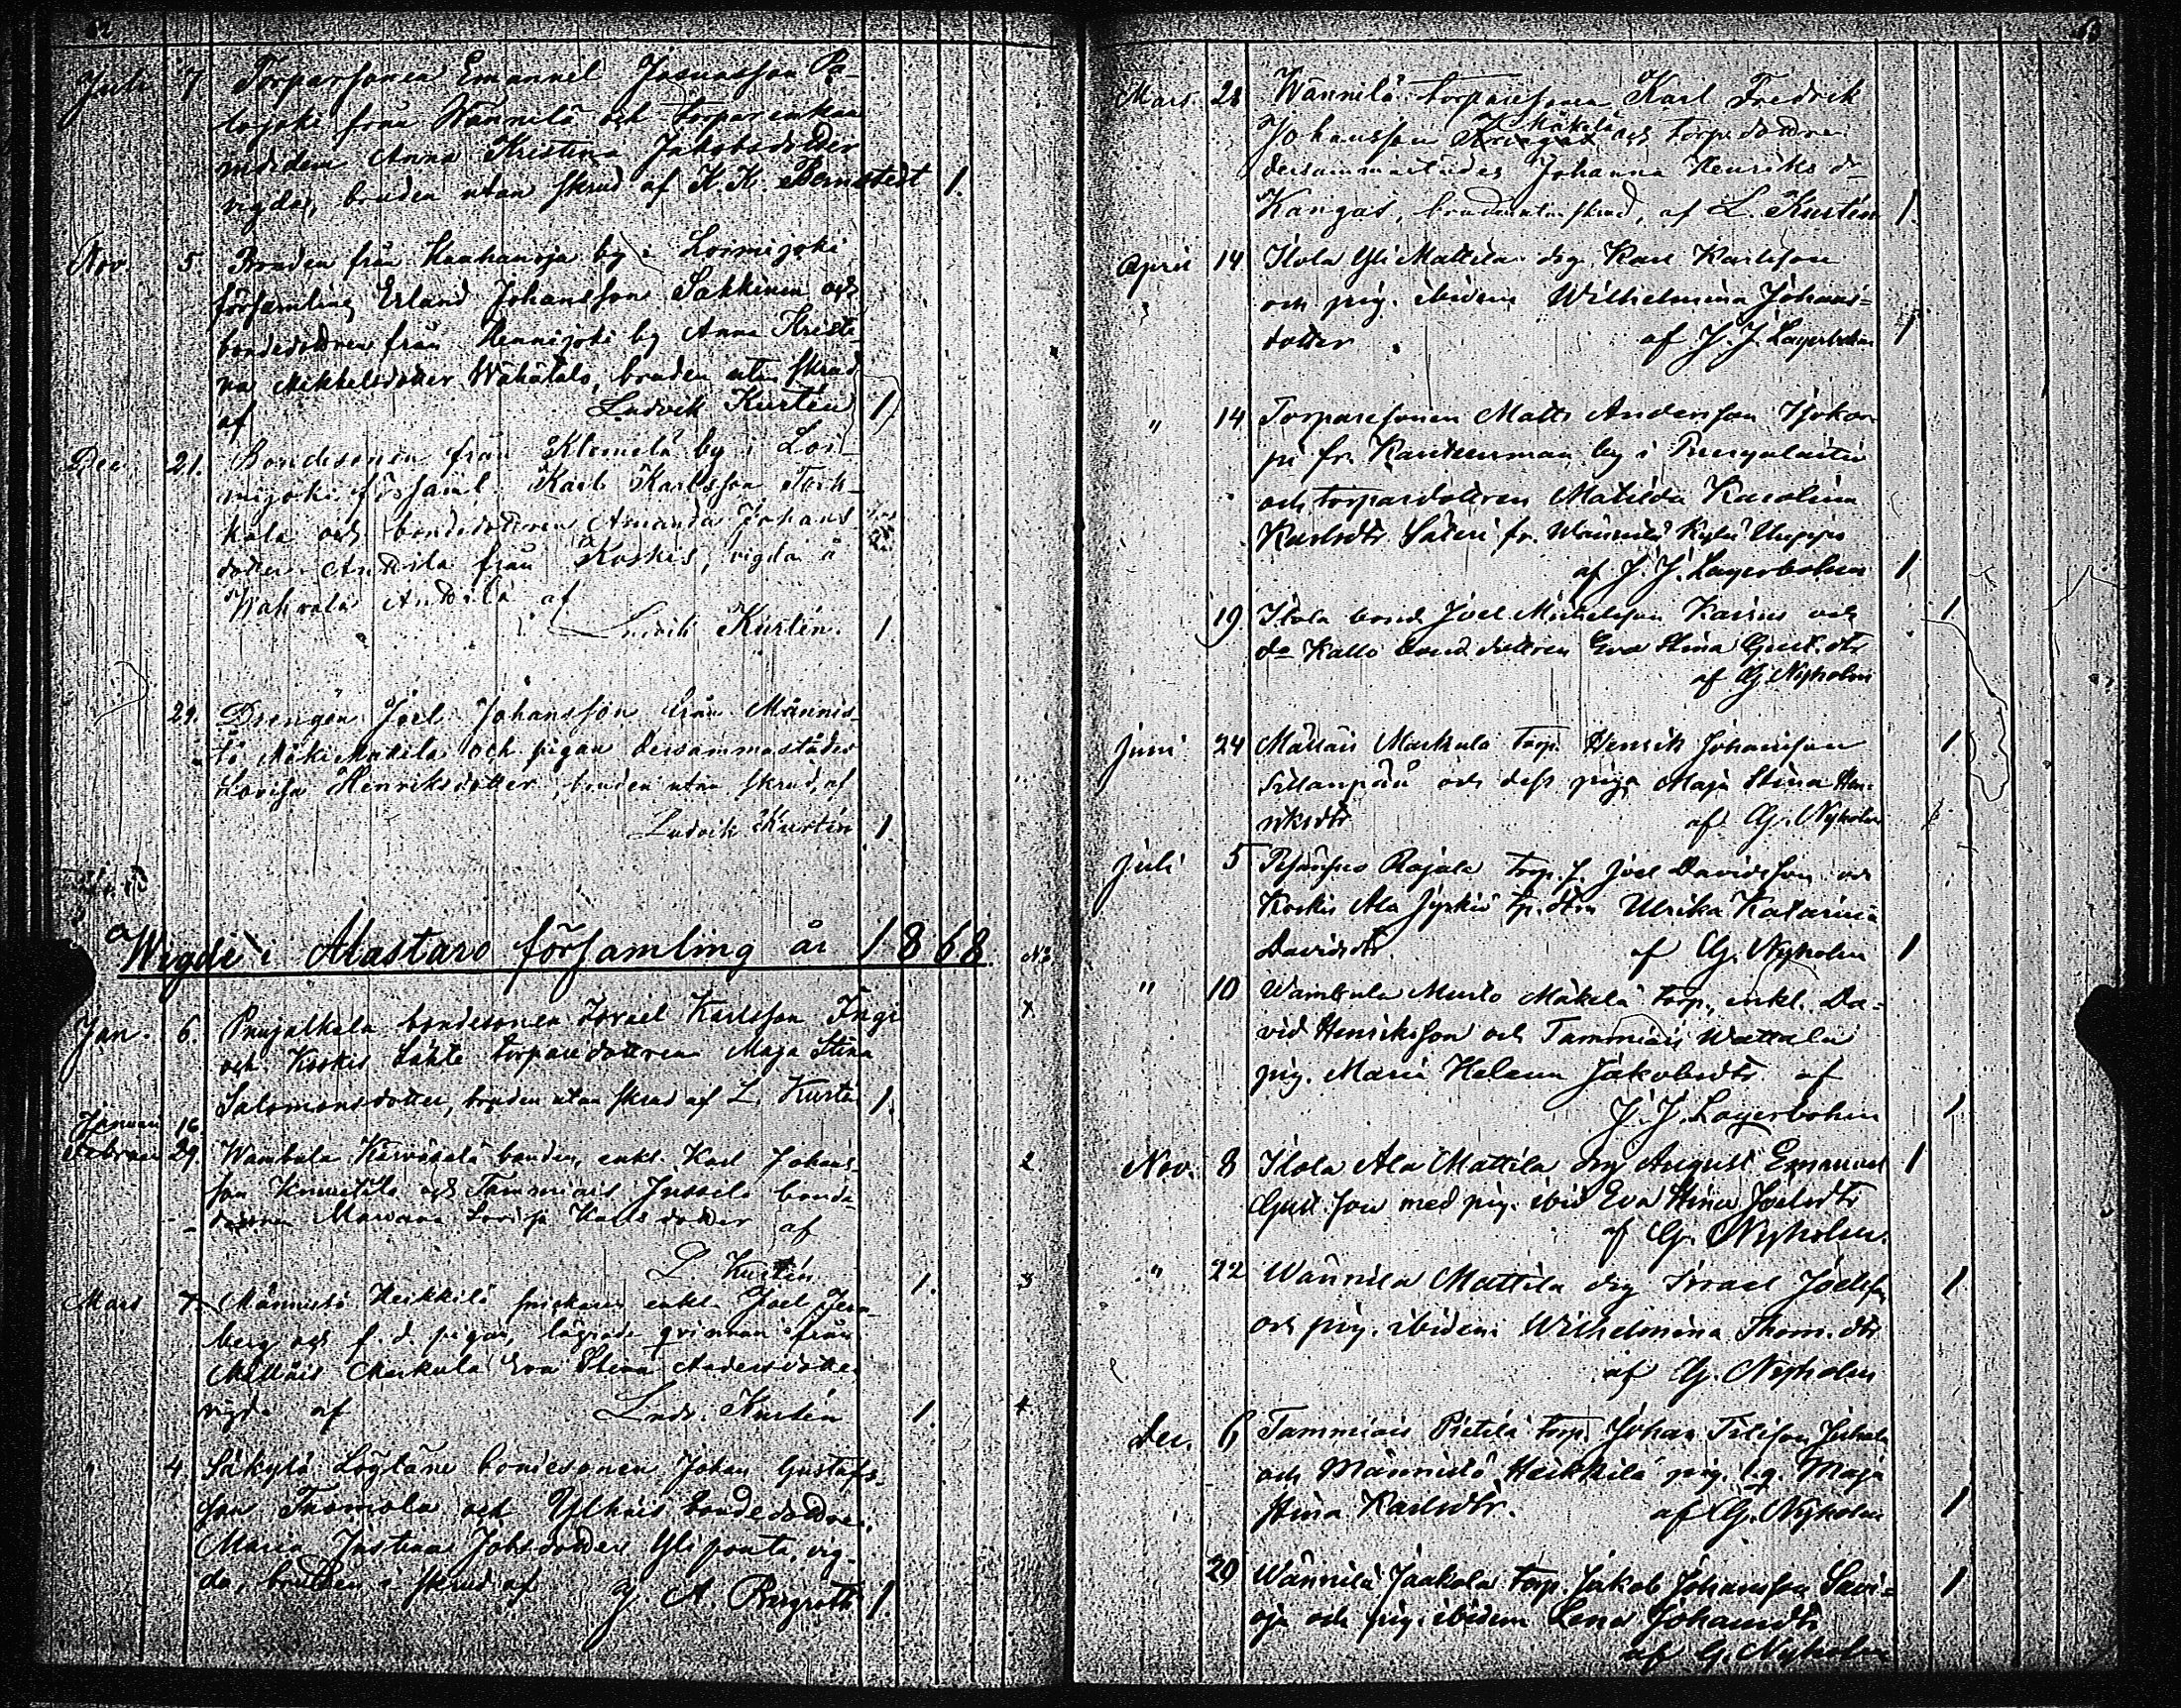 62
Juli 7 Torparsonen Emanuel Josuasson Pa-
lojoki från Wännilä och torparenkan
indidem Anna Kristina Jakobsdotter
vigda, bruden utan skrud af K. K. Bernstedt 1.
Nov. 5. Bonden från Haahanoja by i Loimijoki
församling Erland Johansson Sakkinen och
bondedottren från Hennijoki by Anna Kristi-
na Mikkelsdotter Wähätalo, bruden utan skrud
af Ludvik Kurtén 1
Dec. 21. Bondesonen från Klemelä by i Loi-
mijoki församl. Karl Karlsson
kala och bondedottren Amanda Johans
dotter Anttila från Koskis, vigda å
Anttila af
Ludvik Kurtén. 1.
29. Drengen Joel Johansson från Männis-
tö Mäki Mattila och pigan dersammastädes
Lovisa Henriksdotter, bruden utan skrud, af
Ludvik Kurtén 1.
Wigde i Alastaro församling år 1868. No
Jan. 6. Punjalkala bondesonen Israel Karlsson
och Koskis Lähte torparedottren Maja Stina
Salomonsdotter, bruden utan skrud af L. Kurtén 1.
Januari 16.
Februari 29. Wambula bonden, enkl. Karl Johans 2.
son och Tammiais Jussila bonde
dottren Mariana Lovisa Karlsdotter af
L. Kurtén 1. 3
Mars 7. Männistö Heikkilä snickaren enkl. Joel
berg och f. d. pigan, lägrade qvinnan från
Mälläis Markula Eva Stina Andersdotter
vigda af Ludv. Kurtén 1. 4
" 4 Säkylä bondesonen Johan Gustafs-
son Tuomola och Ylhäis bondedottren
Maria Justina Johsdotter Yliponta, vig-
da, bruden i skrud af J. A. Bergroth 1.
63
Mars. 28 Wännilä torparesonen Karl Fredrik
Johansson Kangas Mäkelä och torp. dottren
dersammastädes Johanna Henriks dr
Kangas, bruden utan skrud, af L. Kurtén 1.
April 14 Ilola Yli Mattila drg. Karl Karlsson
och pig. ibidem Wilhelmina Johans-
dotter af J. J. Lagerbohm 1
" 14 Torparesonen Matts Andersson Isokor-
pi fr. by i Punjalaitio
och torpardottren Matilda Karolina
Karlsdtr Säteri fr. Wännilä Kylä
af J. J. Lagerbohm 1
19 Ilola bond. Joel Michelsson Kaisus och 1
do Kallo bond. dottren Eva Stina Gust. dtr
af G. Nyholm
Juni 24 Mälläis Markula torp. Henrik Johansson 1
Sillanpää och dess piga Maja Stina Hen-
riksdtr af G. Nyholm
Juli 5 Rajala torp. s. Joel Davidsson och
Koskis Ala Jyrkiö tp. dtn Ulrika Katarina
Davidsdtr. af G. Nyholm 1
" 10 Wambula Murto Mäkelä torp., enkl. Da-
vid Henriksson och Tammiais Wattala
pig. Maria Helena Jakobsdtr. af
J. J. Lagerbohm 1
Nov. 8 Ilola Ala Mattila drg August Emanuel 1
Gust. son med pig. ibid Eva Stina Joelsdtr
af G. Nyholm.
" 22 Wännilä Mattila drg Israel Joelsson 1
och pig. ibidem Wilhelmina Thom. dtr
af G. Nyholm
Dec. 6 Tammiais Pietilä torp. Johan
och Männistö Heikkilä pig. l.q. Maja
Stina Karlsdtr. af G. Nyholm 1
20 Wännilä Jaakola torp. Jakob Johansson Savi- 1
oja och pig. ibidem Lena Johansdtr
af G. Nyholm